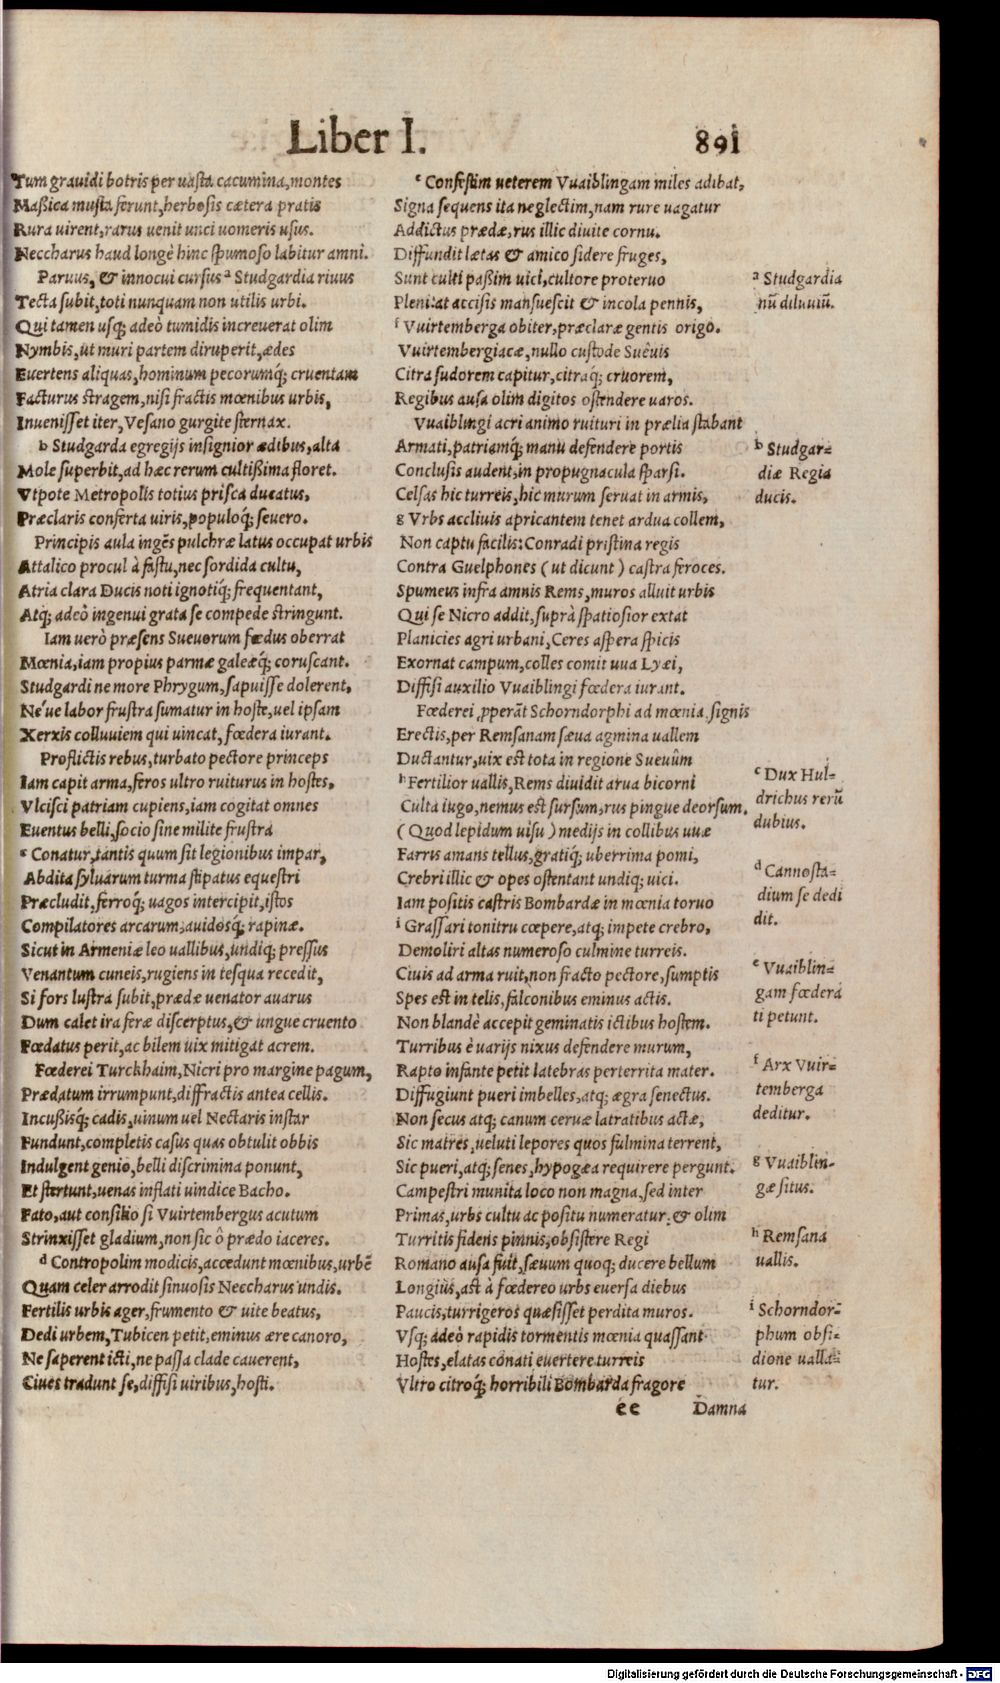 Liber I. 891
Tum grauidi botris per uasta cacumina, montes
Maßica musta ferunt, herbosis cætera pratis
Rura uirent, rarus uenit unci uomeris usus.
Neccharus haud longè hinc spumoso labitur amni.
Paruus, & innocui cursus ᵃ Studgardia riuus
Tecta subit, toti nunquam non utilis urbi.
Qui tamen usq; adeò tumidis increuerat olim
Nymbis, ut muri partem diruperit, ædes
Euertens aliquas, hominum pecorumq́; cruentam
Facturus stragem, nisi fractis mœnibus urbis,
Inuenisset iter, Vesano gurgite sternax.
ᵇ Studgarda egregijs insignior ædibus, alta
Mole superbit, ad hæc rerum cultißima floret.
Vtpote Metropolis totius prisca ducatus,
Præclaris conferta uiris, populoq́; seuero.
Principis aula ingẽs pulchræ latus occupat urbis
Attalico procul à fastu, nec sordida cultu,
Atria clara Ducis noti ignotiq́; frequentant,
Atq; adeò ingenui grata se compede stringunt.
Iam uerò præsens Sueuorum fœdus oberrat
Mœnia, iam propius parmæ galeæq́; coruscant.
Studgardi ne more Phrygum, sapuisse dolerent,
Ne'ue labor frustra sumatur in hoste, uel ipsam
Xerxis colluuiem qui uincat, fœdera iurant.
Proflictis rebus, turbato pectore princeps
Iam capit arma, feros ultro ruiturus in hostes,
Vlcisci patriam cupiens, iam cogitat omnes
Euentus belli, socio sine milite frustra
ᶜ Conatur, tantis quum sit legionibus impar,
Abdita syluarum turma stipatus equestri
Præcludit, ferroq́; uagos intercipit, istos
Compilatores arcarum, auidosq́; rapinæ.
Sicut in Armeniæ leo uallibus, undiq; pressus
Venantum cuneis, rugiens in tesqua recedit,
Si fors lustra subit, prædæ uenator auarus
Dum calet ira feræ discerptus, & ungue cruento
Fœdatus perit, ac bilem uix mitigat acrem.
Fœderei Turckhaim, Nicri pro margine pagum,
Prædatum irrumpunt, diffractis antea cellis.
Incußisq́; cadis, uinum uel Nectaris instar
Fundunt, completis casus quas obtulit obbis
Indulgent genio, belli discrimina ponunt,
Et stertunt, uenas inflati uindice Bacho.
Fato, aut consilio si Vuirtembergus acutum
Strinxisset gladium, non sic ô prædo iaceres.
ᵈ Contropolim modicis, accedunt mœnibus, urbẽ
Quam celer arrodit sinuosis Neccharus undis.
Fertilis urbis ager, frumento & uite beatus,
Dedi urbem, Tubicen petit, eminus ære canoro,
Ne saperent icti, ne passa clade cauerent,
Ciues tradunt se, diffisi uiribus, hosti.
ᵉ Confestim ueterem Vuaiblingam miles adibat,
Signa sequens ita neglectim, nam rure uagatur
Addictus prædæ, rus illic diuite cornu.
Diffundit lætas & amico sidere fruges,
Sunt culti paßim uici, cultore proteruo
Pleni: at accisis mansuescit & incola pennis,
ᶠ Vuirtemberga obiter, præclaræ gentis origo.
Vuirtembergiacæ, nullo custode Suêuis
Citra sudorem capitur, citraq́; cruorem,
Regibus ausa olim digitos ostendere uaros.
Vuaiblingi acri animo ruituri in prælia stabant
Armati, patriamq́; manu defendere portis
Conclusis audent, in propugnacula sparsi.
Celsas hic turreis, hic murum seruat in armis,
ᵍ Vrbs accliuis apricantem tenet ardua collem,
Non captu facilis: Conradi pristina regis
Contra Guelphones (ut dicunt) castra feroces.
Spumeus infra amnis Rems, muros alluit urbis
Qui se Nicro addit, suprà spatiosior extat
Planicies agri urbani, Ceres aspera spicis
Exornat campum, colles comit uua Lyæi,
Diffisi auxilio Vuaiblingi fœdera iurant.
Fœderei ꝓperãt Schorndorphi ad mœnia, signis
Erectis, per Remsanam sæua agmina uallem
Ductantur, uix est tota in regione Sueuûm
ʰ Fertilior uallis, Rems diuidit arua bicorni
Culta iugo, nemus est sursum, rus pingue deorsum.
(Quod lepidum uisu) medijs in collibus uuæ
Farris amans tellus, gratiq́; uberrima pomi,
Crebri illic & opes ostentant undiq; uici.
Iam positis castris Bombardæ in mœnia toruo
ⁱ Grassari tonitru cœpere, atq; impete crebro,
Demoliri altas numeroso culmine turreis.
Ciuis ad arma ruit, non fracto pectore, sumptis
Spes est in telis, falconibus eminus actis.
Non blandè accepit geminatis ictibus hostem.
Turribus è uarijs nixus defendere murum,
Rapto infante petit latebras perterrita mater.
Diffugiunt pueri imbelles, atq; ægra senectus.
Non secus atq; canum ceruæ latratibus actæ,
Sic matres, ueluti lepores quos fulmina terrent,
Sic pueri, atq; senes, hypogæa requirere pergunt.
Campestri munita loco non magna, sed inter
Primas, urbs cultu ac positu numeratur, & olim
Turritis fidens pinnis, obsistere Regi
Romano ausa fuit, sæuum quoq; ducere bellum
Longius, ast à fœdereo urbs euersa diebus
Paucis, turrigeros quæsisset perdita muros.
Vsq; adeò rapidis tormentis mœnia quassant
Hostes, elatas conati euertere turreis
Vltro citroq́; horribili Bombarda fragore
ee Damna
ᵃ Studgardia
nũ diluuiũ.
ᵇ Studgar-
diæ Regia
ducis.
ᶜ Dux Hul-
drichus rerũ
dubius.
ᵈ Cannosta-
dium se dedi
dit.
ᵉ Vuaiblin-
gam fœdera
ti petunt.
ᶠ Arx Vuir-
temberga
deditur.
ᵍ Vuaiblin-
gæ situs.
ʰ Remsana
uallis.
ⁱ Schorndor-
phum obsi-
dione ualla-
tur.
Digitalisierung gefördert durch die Deutsche Forschungsgemeinschaft - DFG